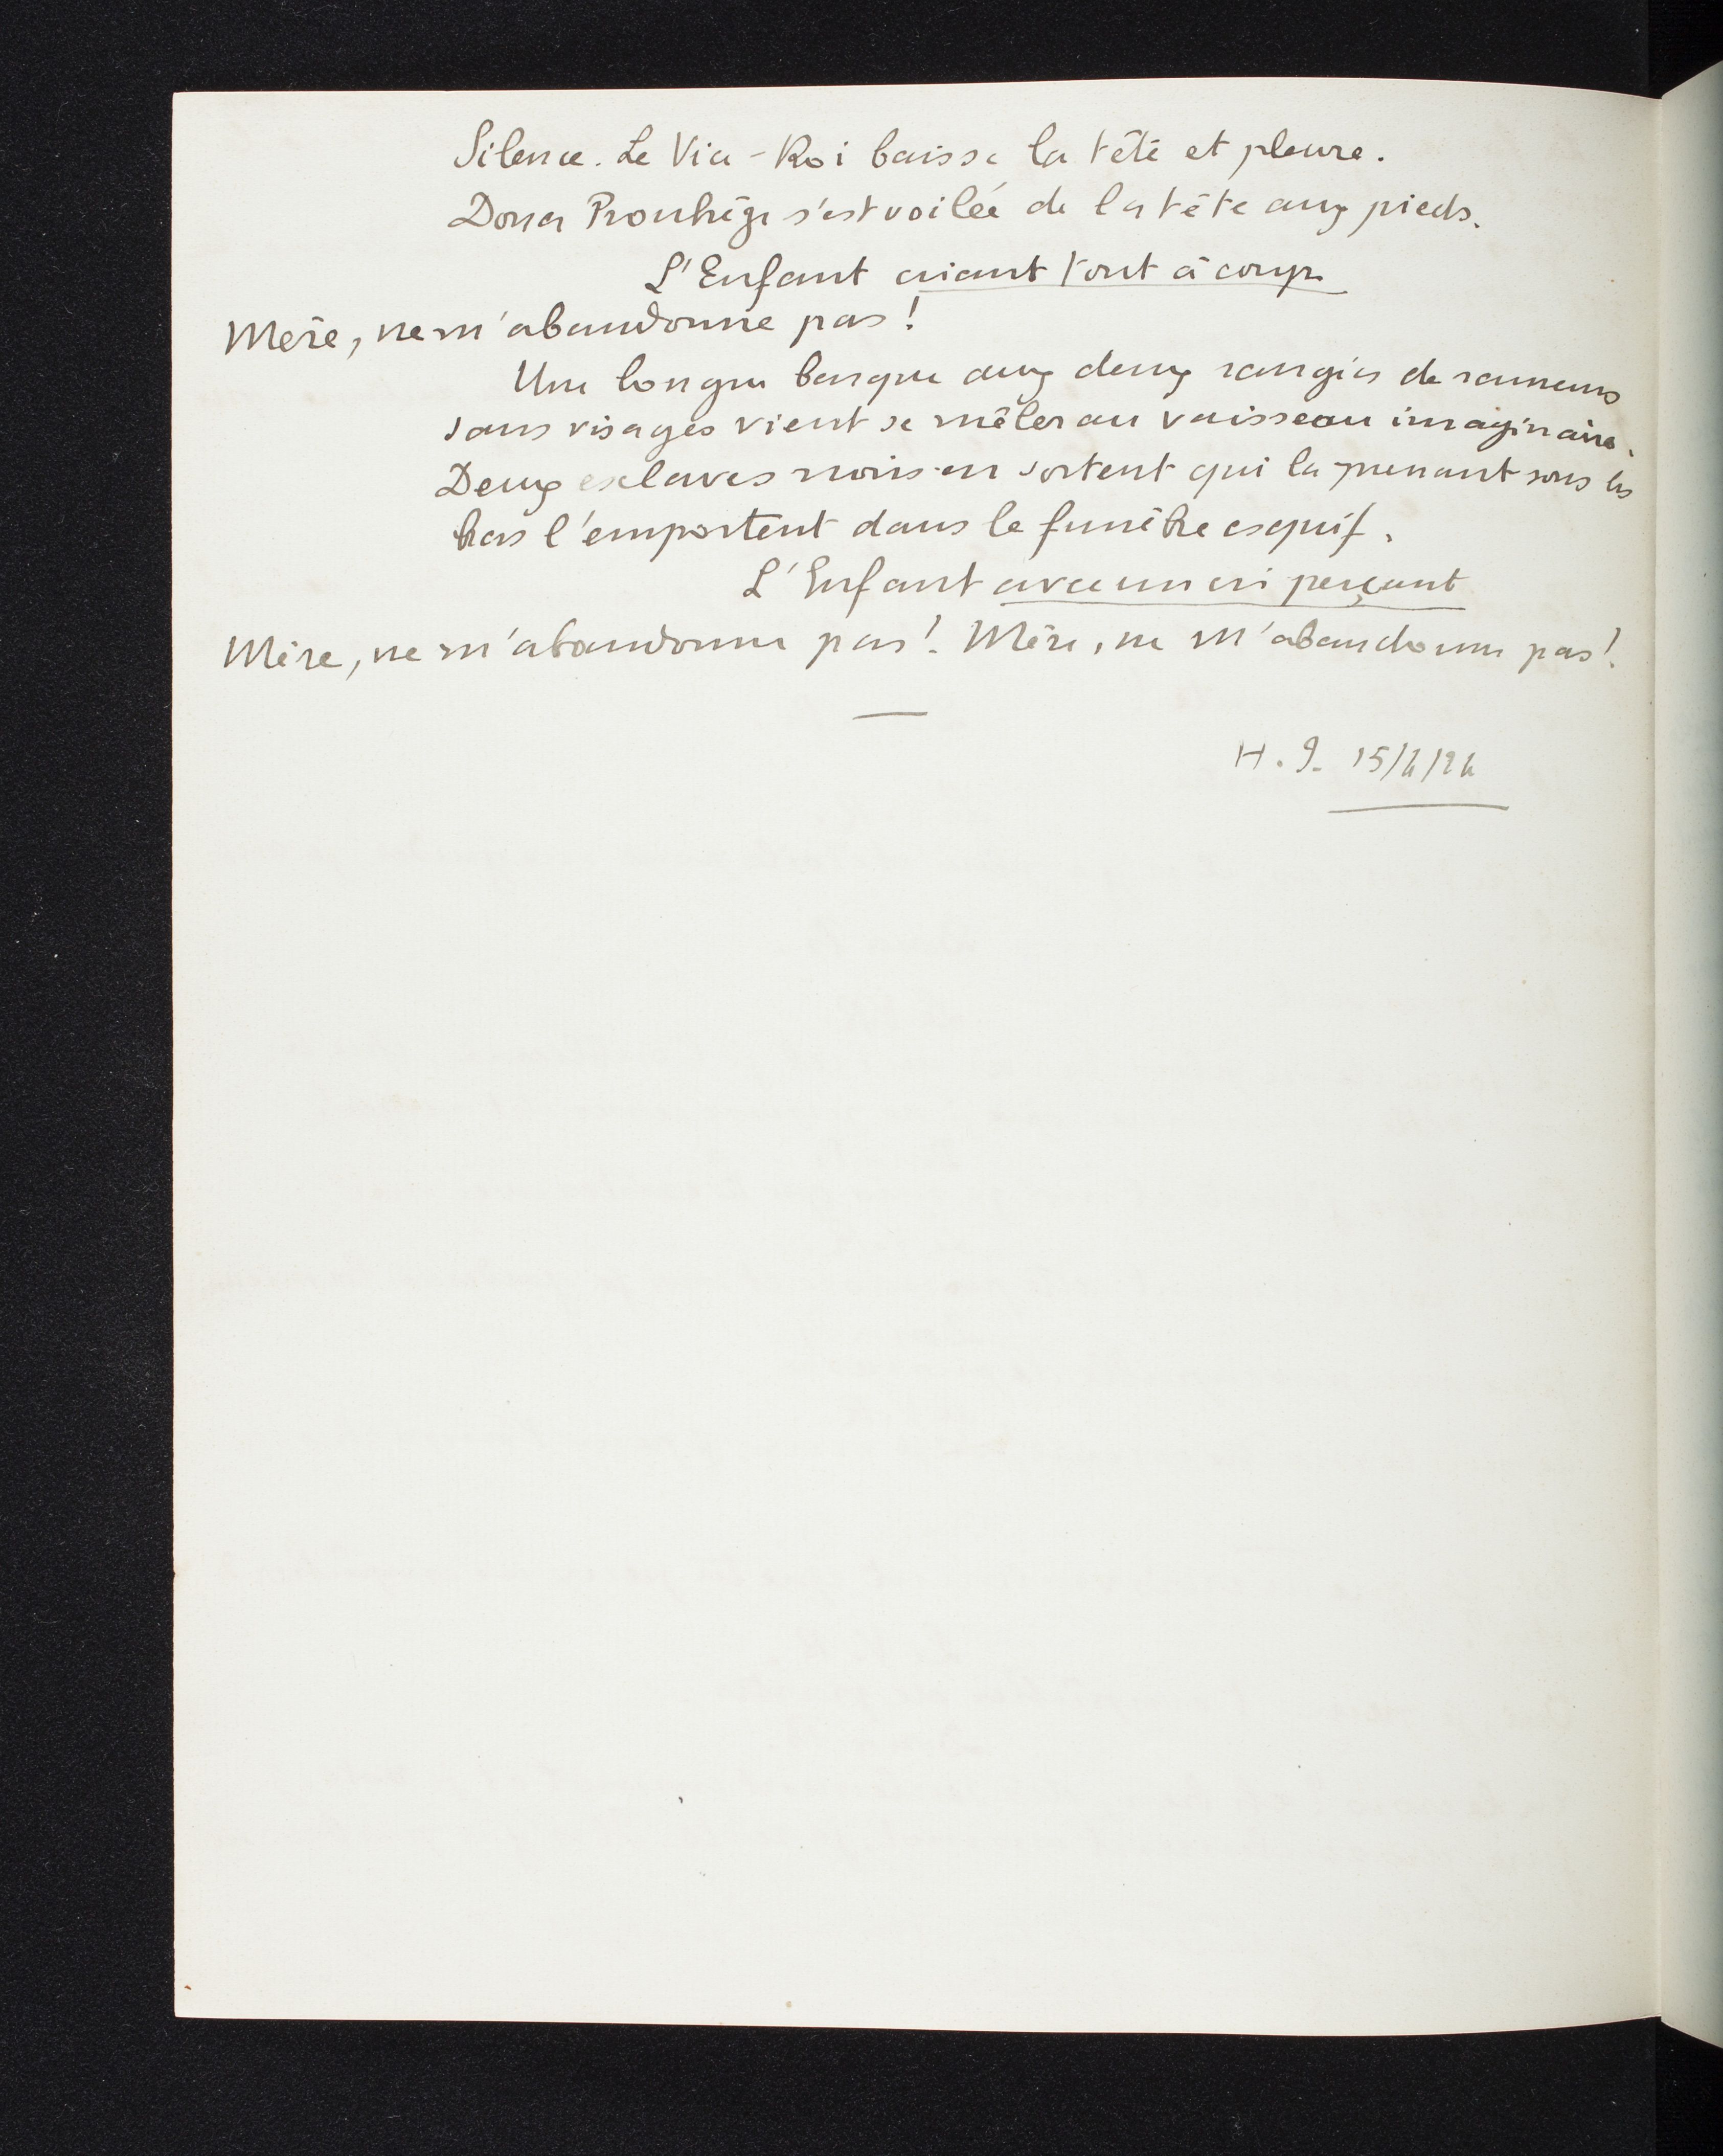 Silence. Le Vice-Roi baisse la tête et pleure.
Dona Prouhèze s'est voilée de la tête aux pieds.
L'Enfant criant tout à coup
Mère, ne m'abandonne pas !
Une longue barque aux deux rangées de rameurs
sans visages vient se mêler au vaisseau imaginaire.
Deux esclaves noirs en sortent qui la prenant sous les
bras l'emportent dans le funèbre esquif.
L'Enfant avec un cri perçant
Mère, ne m'abandonne pas ! Mère, ne m'abandonne pas !
15/4/24